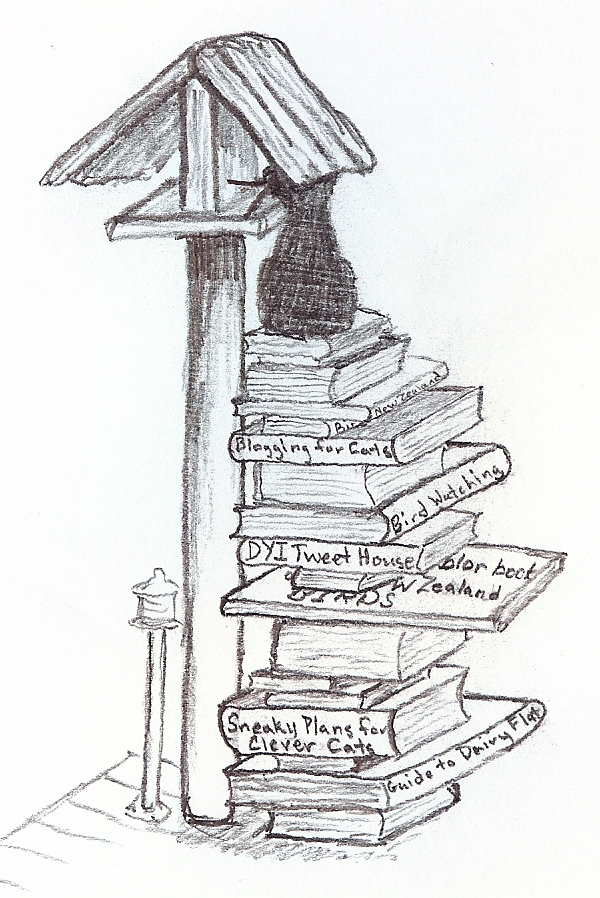 Bird New Zealand
Blogging for Earls
Bird Watching
DYI Tweet House
olor book
W Zealand
BIRDS
Sneaky Plans for
Clever Cats
Guide to Dairy Flat